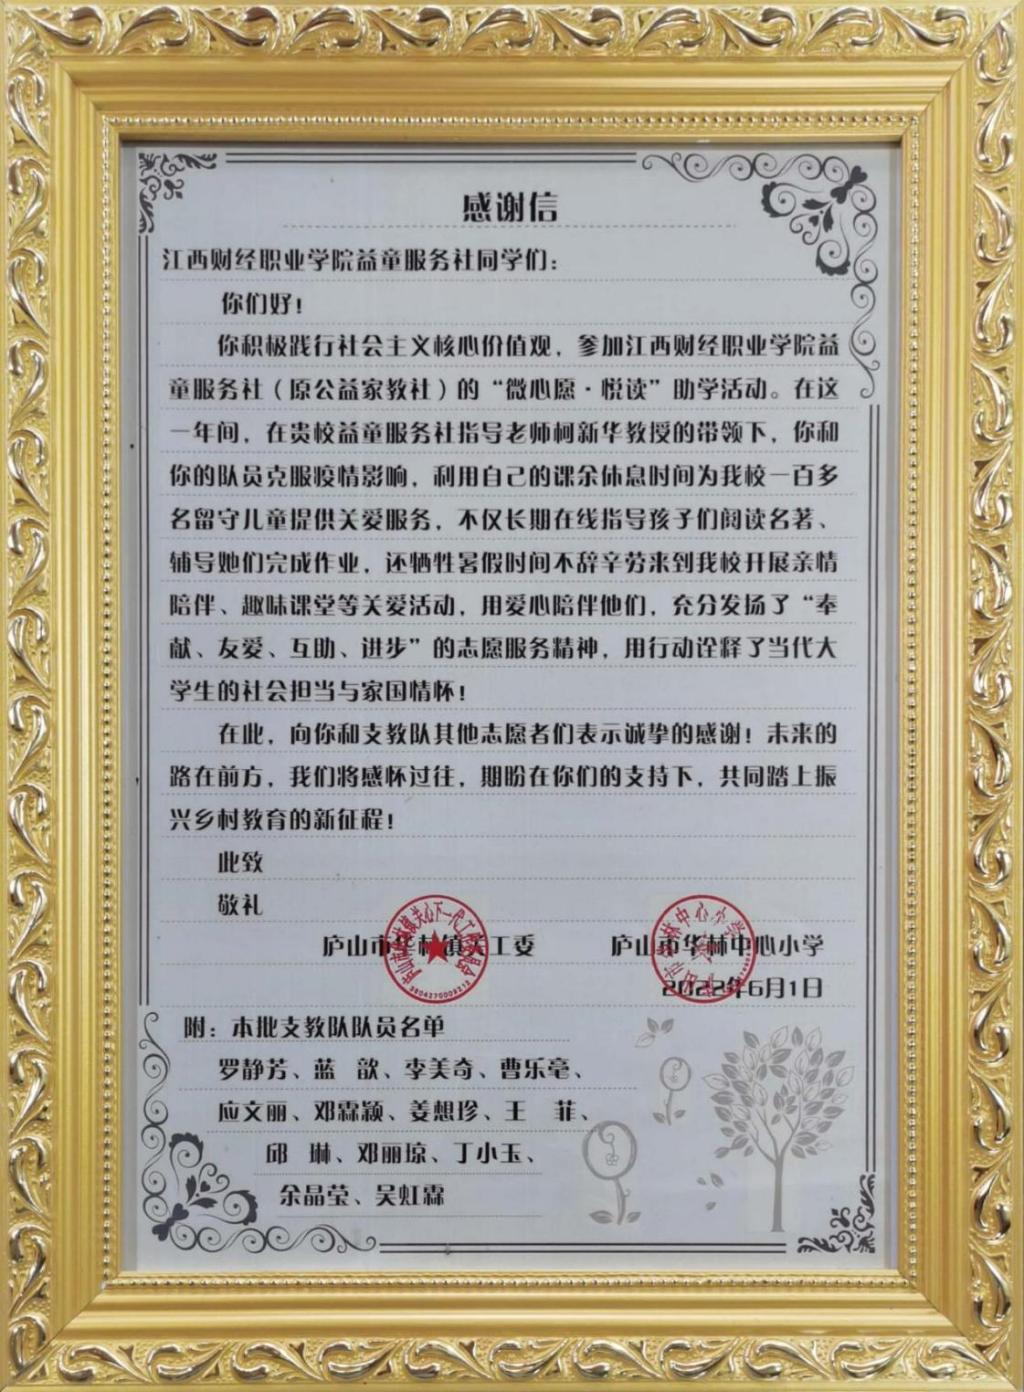 感谢信
江西财经职业学院益童服务社同学们：
你们好！
你积极践行社会主义核心价值观，参加江西财经职业学院益
童服务社（原公益家教社）的“微心愿·悦读”助学活动。在这
一年间，在贵校益童服务社指导老师柯新华教授的带领下，你和
你的队员克服疫情影响，利用自己的课余休息时间为我校一百多
名留守儿童提供关爱服务，不仅长期在线指导孩子们阅读名著、
辅导她们完成作业，还牺牲暑假时间不辞辛劳来到我校开展亲情
陪伴、趣味课堂等关爱活动，用爱心陪伴他们，充分发扬了“奉
献、友爱、互助、进步”的志愿服务精神，用行动诠释了当代大
学生的社会担当与家国情怀！
在此，向你和支教队其他志愿者们表示诚挚的感谢！未来的
路在前方，我们将感怀过往，期盼在你们的支持下，共同踏上振
兴乡村教育的新征程！
此致
敬礼
庐山市华林镇关工委 庐山市华林中心小学
2022年6月1日
附：本批支教队队员名单
罗静芳、蓝 歆、李美奇、曹乐亳、
应文丽、邓霖颖、姜想珍、王 菲、
邱 琳、邓丽琼、丁小玉、
余晶莹、吴虹霖